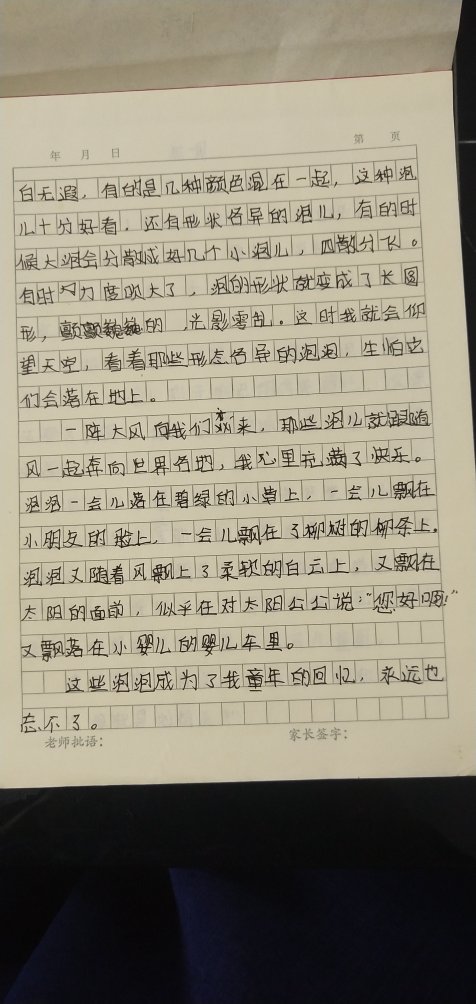 年 月 日 第 页
白无遐，有的是几种颜色混在一起，这种泡
儿十分好看，还有形状各异的泡儿，有的时
候大泡会分散成好几个小泡儿，四散分飞。
有时力度吹大了，泡的形状就变成了长圆
形，颤颤巍巍的，光影零乱。这时我就会仰
望天空，看着那些形态各异的泡泡，生怕它
们会落在地上。
一阵大风向我们来，那些泡儿就跟随
风一起奔向世界各地，我心里充满了快乐。
泡泡一会儿落在碧绿的小草上，一会儿飘在
小朋友的脸上，一会儿飘在了柳树的柳条上。
泡泡又随着风飘上了柔软的白云上，又飘在
太阳的面前，似乎在对太阳公公说：“您好啊！”
又飘落在小婴儿的婴儿车里。
这些泡泡成为了我童年的回忆，永远也
忘不了。
老师批语： 家长签字：